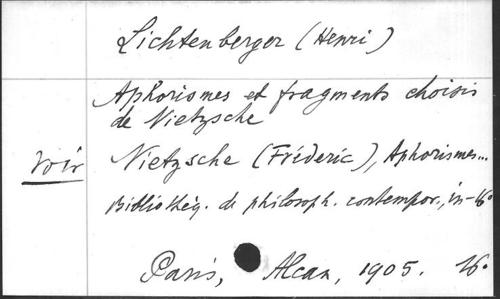 Lichtenberger (Henri)
Aphorismes et fragments choisis
de Nietzsche
Voir Nietzsche (Fréderic), Aphorismes...
Bibliothèq. de philosoph. contempor., in-16°
Paris, Alcan, 1905. 16°